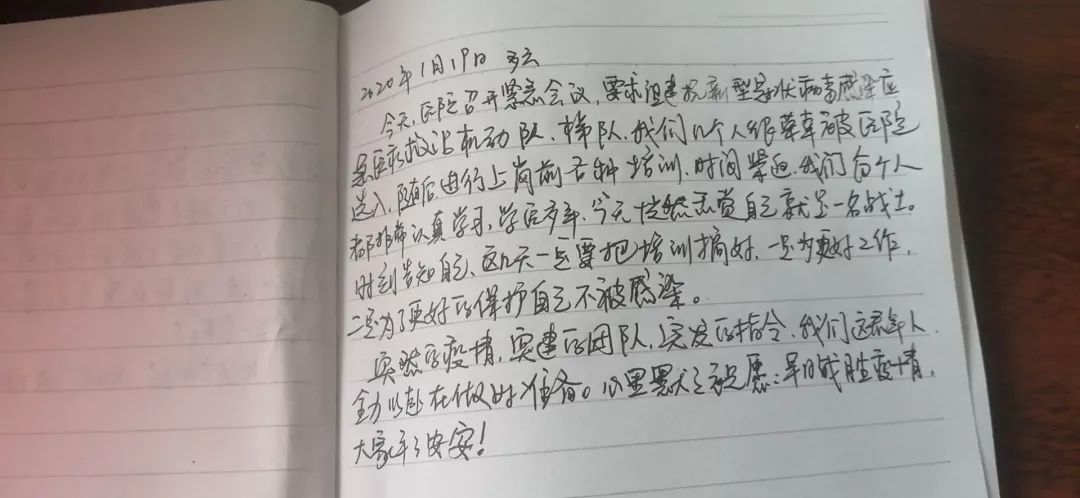 2020年1月19日 多云
今天,医院召开紧急会议,要求组建抗新型冠状病毒感染应
急医疗救治机动队、梯队,我们几个人很荣幸被医院
选入,随后进行上岗前各种培训,时间紧迫,我们每个人
都非常认真学习,学医多年,今天恍然感觉自己就是一名战士。
时刻告知自己,这几天一定要把培训搞好,一是为更好工作,
二是为了更好的保护自己不被感染。
突然的疫情,突建的团队,突发的指令,我们这群年人
全力以赴在做好准备。心里默默祝愿:早日战胜疫情,
大家平平安安!